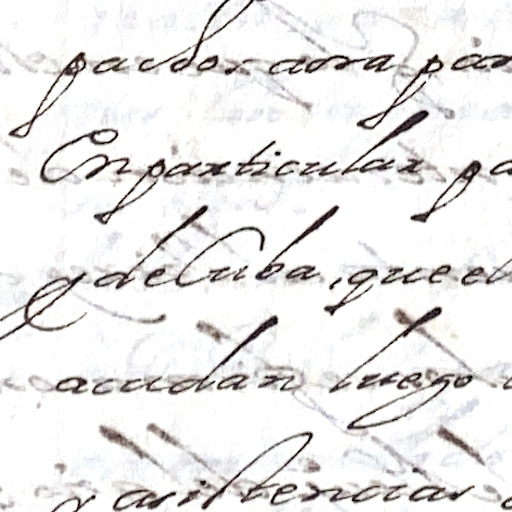 para
En particular pa
y de Cuba, que el
acudan luego
y asistencias